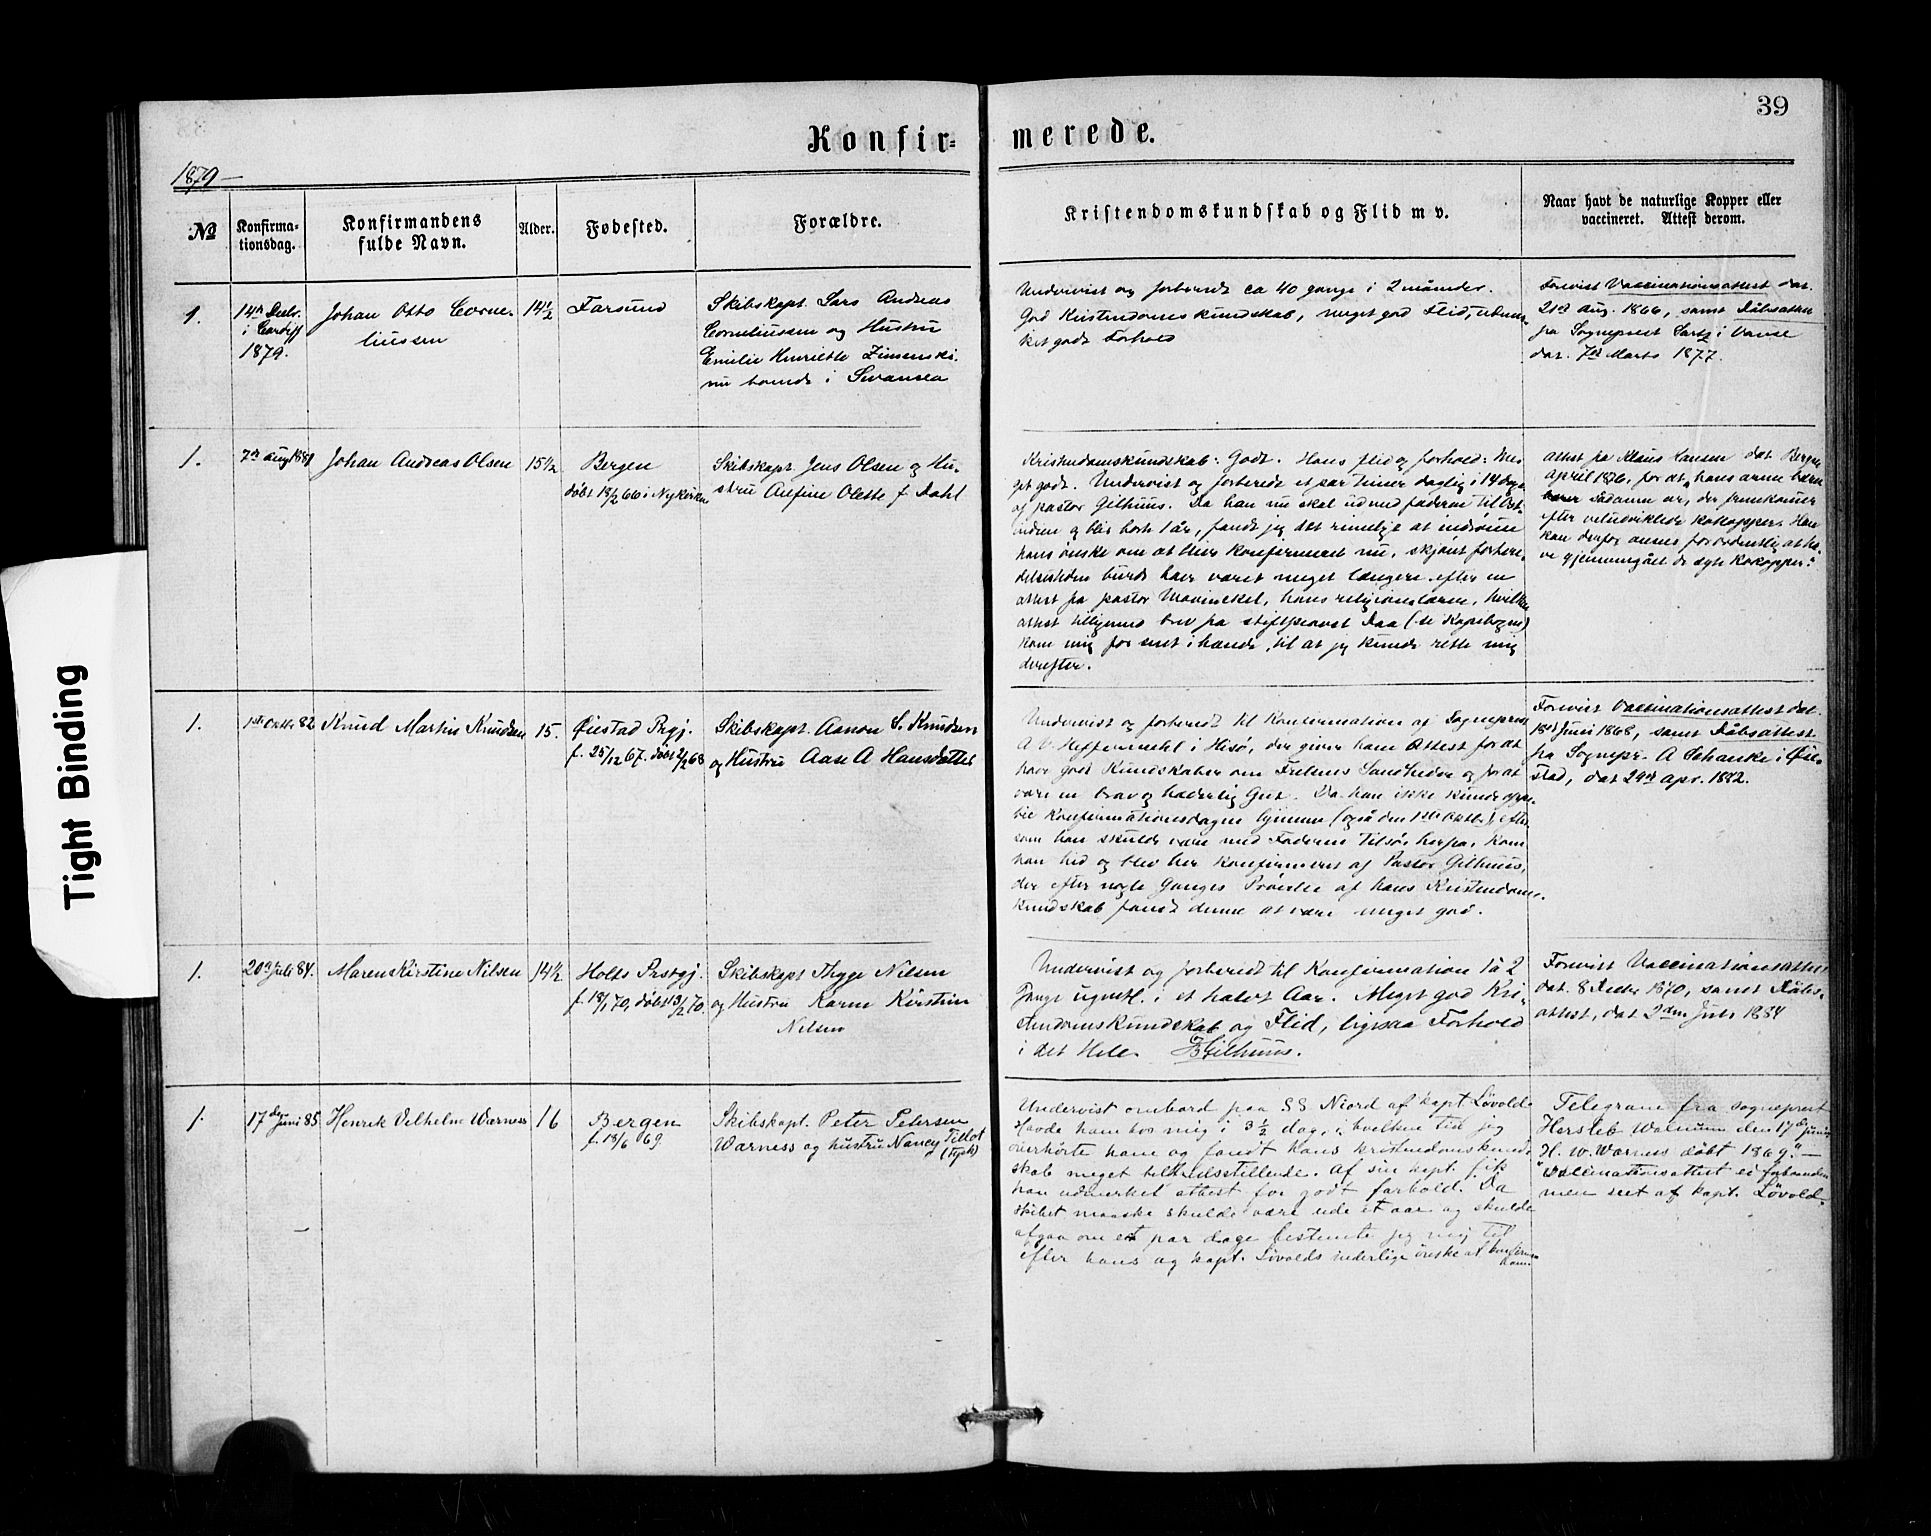 39
Konfir=
merede.
1879 —
№
Konfirma-
tionsdag.
Konfirmandens
fulde Navn.
Alder.
Fødested.
Forældre.
Kristendomskundskab og Flid m v.
Naar havt de naturlige Kopper eller
vaccineret. Attest derom.
1.
14de Decbr.
i Cardiff
1879.
Johan Otto Corne-
liussen
14½
Farsund
Skibskapt. Lars Andreas
Corneliussen og Hustru
Emilie Henriette
nu boende i Swansea
Undervist og forberedt ca 40 gange i 2 måneder.
God Kristendomskundskab, meget god Flid, udmær-
ket godt Forhold
Forevist Vaccinationsattest dat.
21de Aug. 1866, samt Dåbsattest
fra Sogneprest Lartz i Vanse
dat. 7de Marts 1877.
1.
7de aug 1881
Johan Andreas Olsen
15½
Bergen
døbt 18/2 66 i Nykirken
Skibskapt. Jens Olsen og Hu-
stru Anfine Olette f. Dahl
Kristendomskundskab: Godt. Hans flid og forhold: Me-
get godt. Undervist og forberedt et par timer daglig i 14 dage
af pastor Gilhuus. Da han nu skal ud med faderen til Ost-
indien og blir borte 1 år, fandt jeg det rimelig at indrømme
hans ønske om at blive konfirmeret nu, skjønt forbere-
delsestiden burde have været meget længere efter en
attest fra pastor Mowinckel, hans religionslærer, hvilken
attest tilligemed brev fra stiftsprovst Daa (se Kopibogen)
kom mig for sent ihænde, til at jeg kunde rette mig
derefter.
attest fra Klaus Hansen dat Bergen
april 1876, for at "hans arme bærer
sådanne ar, der fremkommer
efter veludviklede kokopper. Han
kan derfor anses for ordentlig at ha-
ve gjennemgået de egte Kokopper."
1.
1ste Oktbr 82
Knud Martin Knudsen
15.
Øiestad Prgj.
f. 25/12 67. døbt 2/2 68
Skibskapt. Aanon S. Knudsen
og Hustru Aase A Hansdatter
Undervist og forberedt til Konfirmation af Sogneprest
A V. Heffermehl i Hisø, der giver ham Attest for at
have god Kundskaber om Frelsens Sandheder og for at
være en brav og hæderlig Gut. Da han ikke kunde oppe-
bie Konfirmationsdagen hjemme (også den 1ste Oktbr.) efter-
som han skulde være med Faderen tilsøs herfra, kom
han hid og blev her konfirmeret af Pastor Gilhuus,
der efter nogle Ganges Prøvelse af hans Kristendoms-
kundskab fandt denne at være meget god.
Forevist Vaccinationsattest dat.
18de Juni 1868, samt Dåbsattest
fra Sognepr. A Schanke i Øie-
stad, dat 29de apr. 1882.
1.
20de Juli 84.
Maren Kirstine Nilsen
14½
Holts Prstgj.
f. 18/1 70, døbt 13/2 70.
Skibskapt Thygge Nilsen
og Hustru Karen Kirstin
Nilsen
Undervist og forberedt til Konfirmation 1 à 2
Gange ugentl. i et halvt Aar. Meget god Kri-
stendomskundskab og Flid, ligesaa Forhold
i det Hele. Gilhuus.
Forevist Vaccinationsattest
dat. 8 Decbr 1870, samt Dåbs-
attest, dat 2den Juli 1884
1.
17de Juni 85
Henrik Vilhelm Warness
16
Bergen
f. 18/6 69
Skibskapt. Peter Petersen
Warness og hustru Nancy Tillot
(tysk)
Undervist ombord paa SS Niord af kapt Løvold.
Havde ham hos mig i 3½ dag, i hvilken tid jeg
overhørte ham og fandt hans kristendomskund-
skab meget tilfredsstillende. Af sin kapt. fik
han udmerket attest for godt forhold. Da
skibet maaske skulde være ude et aar og skulde
afgaa om et par dage bestemte jeg mig til
efter hans og kapt. Løvolds inderlige ønske at konfirmere
ham.
Telegram fra sogneprest
Hersleb Walnum den 17de Juni:
"H. W. Warness døbt 1869." —
Vaccinationsattest ei forhaanden
men seet af kapt. Løvold.
Tight Binding